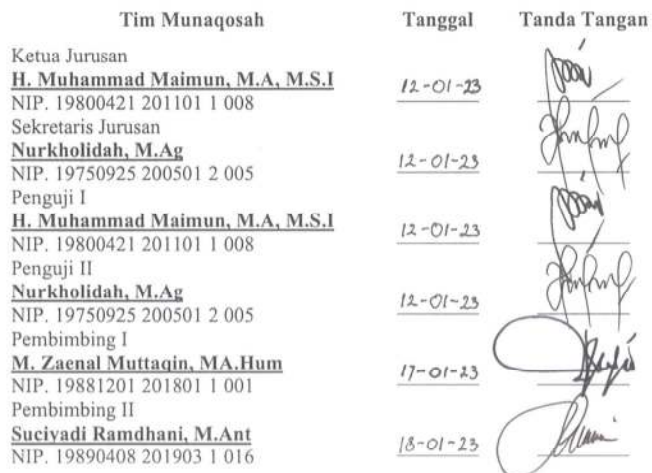 Tim Munaqosah Tanggal Tanda Tangan
Ketua Jurusan
H. Muhammad Maimun, M.A, M.S.I 12-01-23
NIP. 19800421 201101 1 008
Sekretaris Jurusan
Nurkholidah, M.Ag 12-01-23
NIP. 19750925 200501 2 005
Penguji I
H. Muhammad Maimun, M.A, M.S.I 12-01-23
NIP. 19800421 201101 1 008
Penguji II
Nurkholidah, M.Ag 12-01-23
NIP. 19750925 200501 2 005
Pembimbing I
M. Zaenal Muttaqin, MA.Hum 17-01-23
NIP. 19881201 201801 1 001
Pembimbing II
Suciyadi Ramdhani, M.Ant 18-01-23
NIP. 19890408 201903 1 016